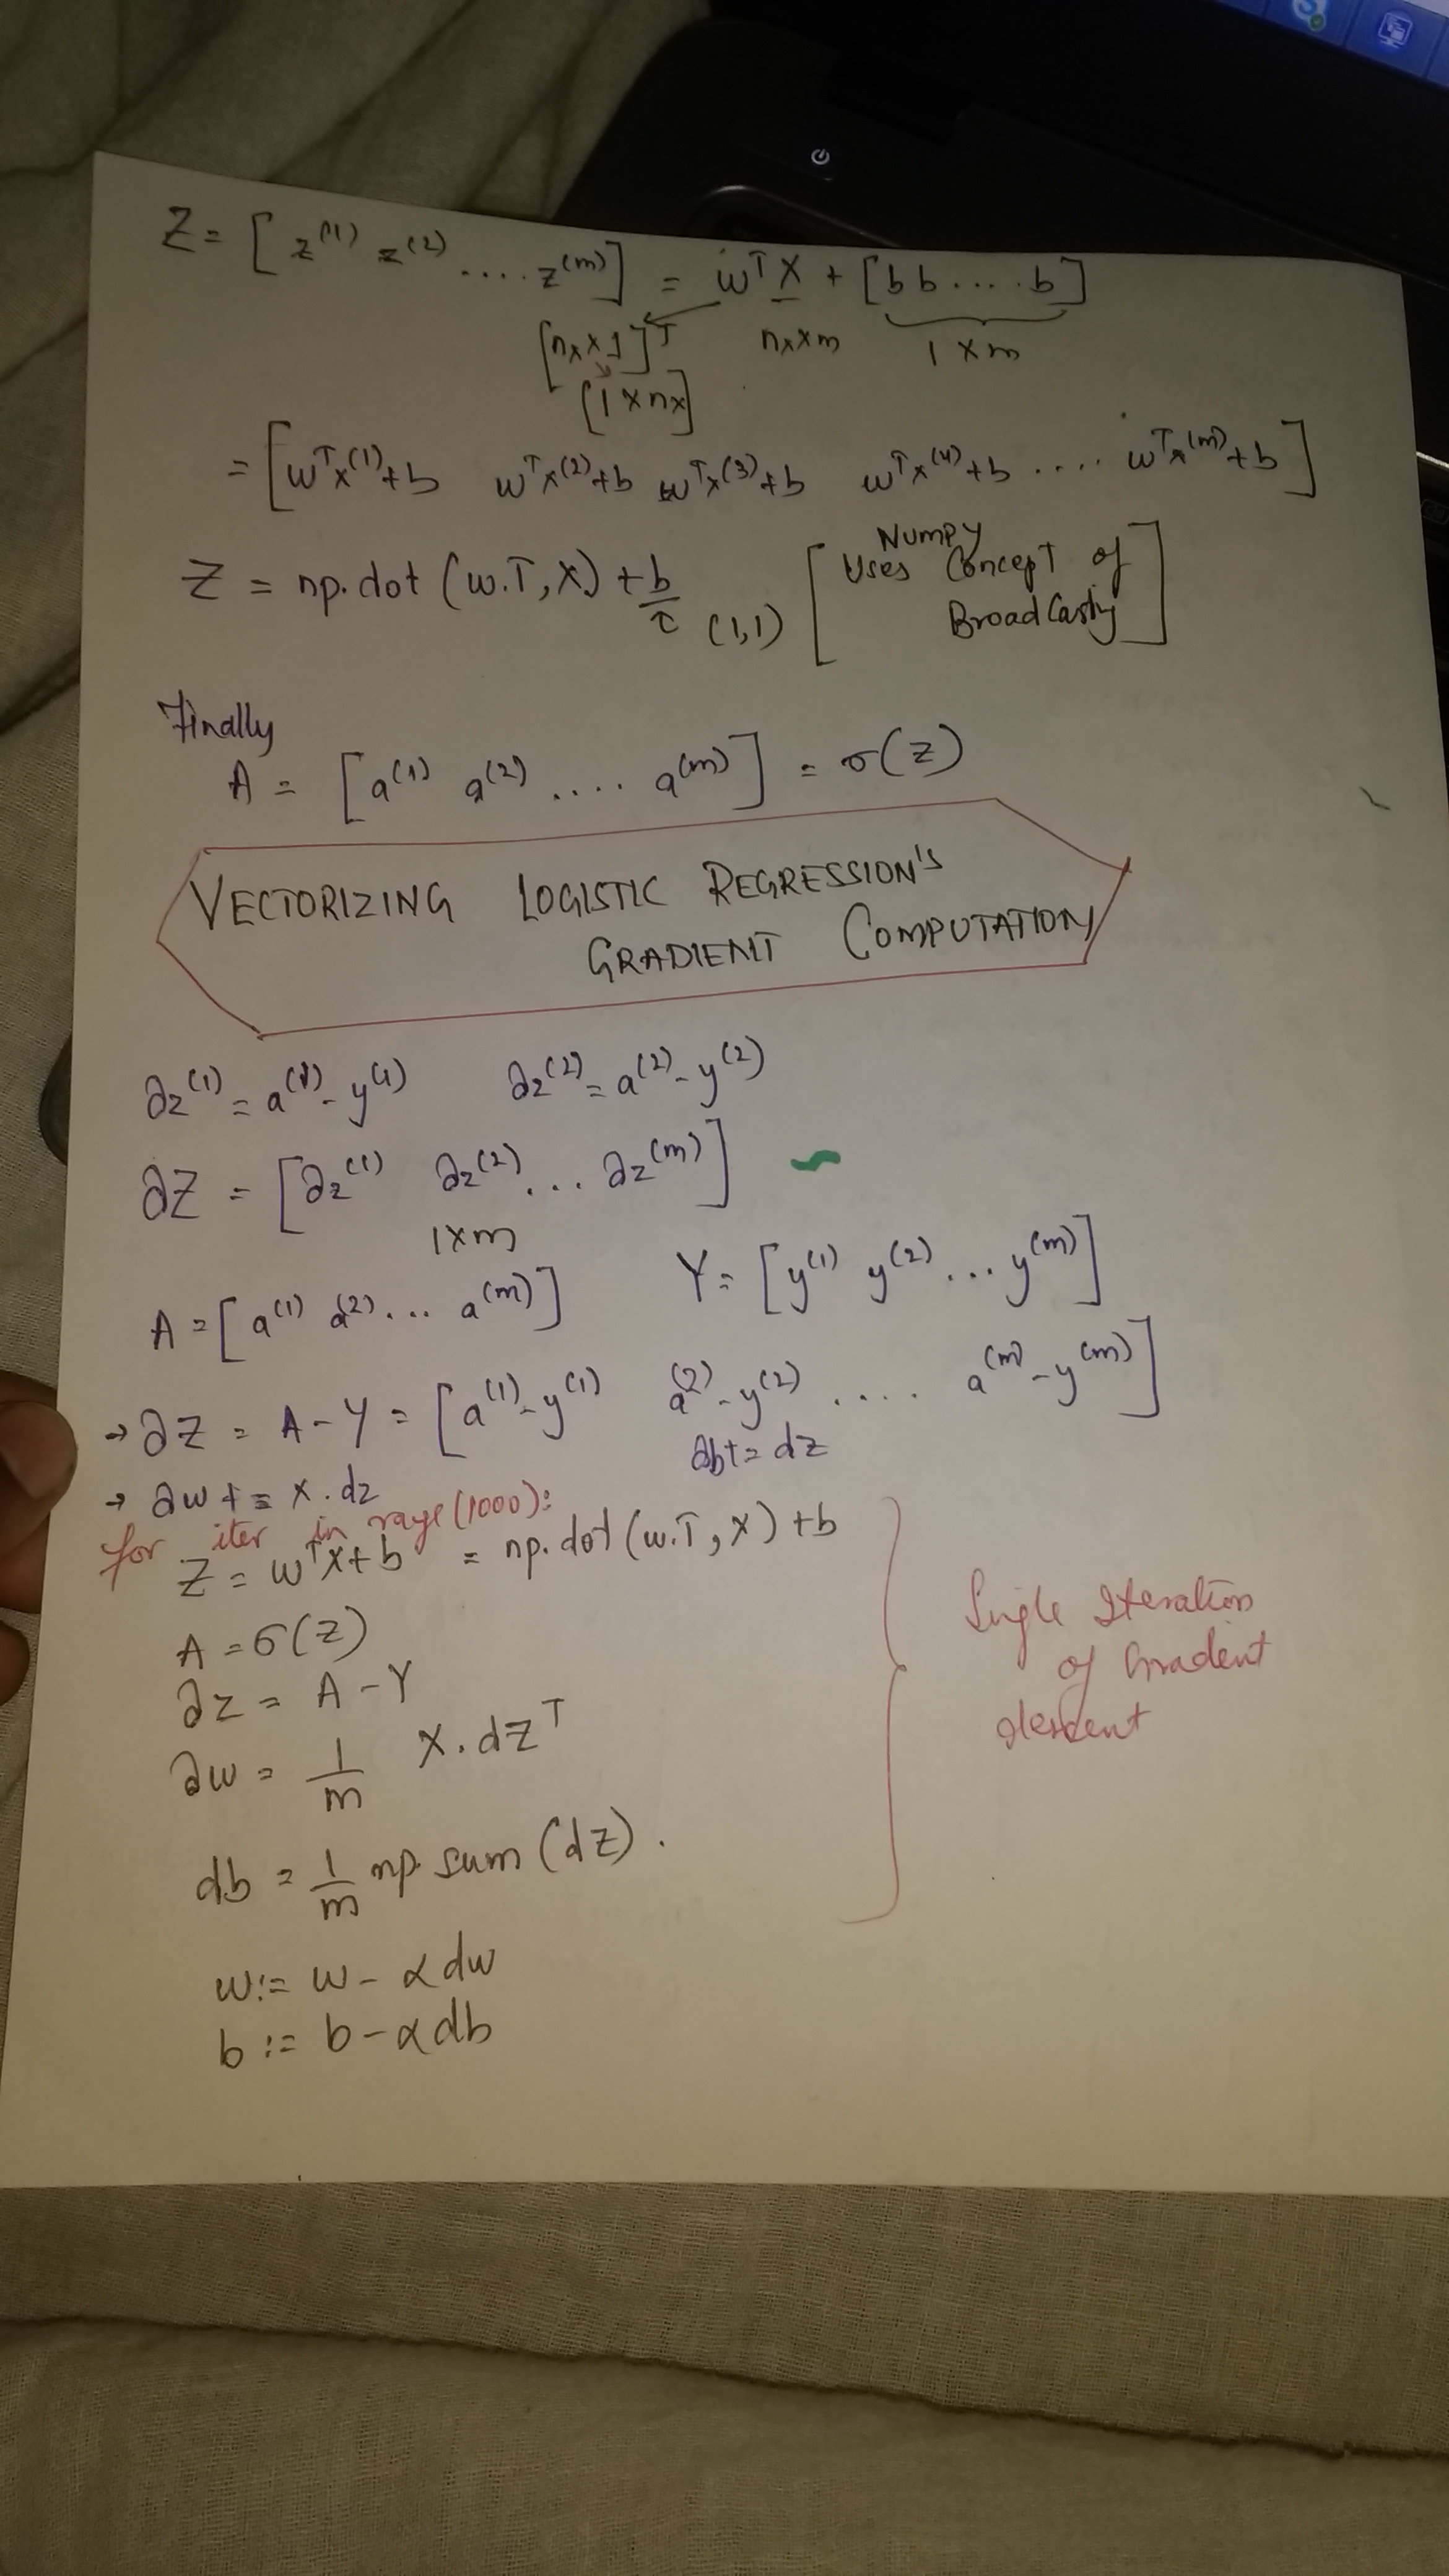 Z = [ z⁽¹⁾ z⁽²⁾ .... z⁽ᵐ⁾ ] = wᵀX + [b b .... b]
[nx x 1]ᵀ nx x m 1 x m
[1 x nx]
= [ wᵀx⁽¹⁾+b wᵀx⁽²⁾+b wᵀx⁽³⁾+b wᵀx⁽⁴⁾+b .... wᵀx⁽ᵐ⁾+b ]
Numpy
Z = np.dot (w.T, X) + b (1,1) [ Uses Concept of
BroadCasty ]
Finally
A = [ a⁽¹⁾ a⁽²⁾ .... a⁽ᵐ⁾ ] = σ(z)
VECTORIZING LOGISTIC REGRESSION'S
GRADIENT COMPUTATION
∂z⁽¹⁾ = a⁽¹⁾ - y⁽¹⁾ ∂z⁽²⁾ = a⁽²⁾ - y⁽²⁾
∂Z = [ ∂z⁽¹⁾ ∂z⁽²⁾ ... ∂z⁽ᵐ⁾ ]
1 x m
A = [ a⁽¹⁾ a⁽²⁾ ... a⁽ᵐ⁾ ] Y = [ y⁽¹⁾ y⁽²⁾ ... y⁽ᵐ⁾ ]
→ ∂Z = A - Y = [ a⁽¹⁾ - y⁽¹⁾ a⁽²⁾ - y⁽²⁾ .... a⁽ᵐ⁾ - y⁽ᵐ⁾ ]
→ ∂w += x.dz ∂b += dz
for iter in range (1000):
Z = wᵀX + b = np.dot (w.T, X) + b
A = σ(Z)
∂z = A - Y
∂w = 1/m X.dZᵀ
db = 1/m np.sum (dZ).
Single Iteration
of Gradent
descent
w := w - α dw
b := b - α db